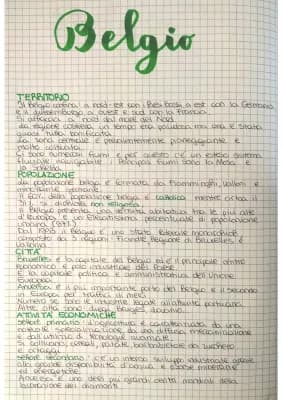 Belgio
TERRITORIO
Il Belgio confina a nord-est con i Paesi Bassi, a est con la Germania
e il Lussemburgo, a ovest e sud con la Francia.
Si affaccia a nord dal mare del Nord.
La regione costiera un tempo era paludosa ma ora è stata
quasi tutta bonificata.
La zona centrale è prevalentemente pianeggiante e
molto coltivata.
Ci sono numerosi fiumi e per questo c'è un esteso sistema
fluviale navigabile. I principali fiumi sono la Mosa e
la Schelda.
POPOLAZIONE
La popolazione belga è formata da Fiamminghi, Valloni e
minoranze germaniche.
Il 60% della popolazione belga è cattolica mentre circa il
si dichiara non religiosa.
Il Belgio presenta una densità abitativa tra le più alte
d'Europa e un'elevatissima percentuale di popolazione
urbana (97%).
Dal 1993 il Belgio è uno stato federale monarchico
composto da 3 regioni: Fiandre, Regione di Bruxelles e
Vallonia.
CITTÀ
Bruxelles è la capitale del Belgio ed è il principale centro
economico e polo industriale del Paese.
È la capitale politica e amministrativa dell'Unione
Europea.
Anversa è il più importante porto del Belgio e il secondo
in Europa per traffico di merci.
Numerose sono le industrie legate all'attività portuale.
Altre città sono Liegi, Bruges,
ATTIVITÀ ECONOMICHE
Settore primario: l'agricoltura è caratterizzata da una
notevole specializzazione, da una diffusa meccanizzazione
e dall'utilizzo di tecnologie avanzate.
Si coltivano cereali, patate, barbabietole da zucchero
e ortaggi.
Settore secondario: c'è un intenso sviluppo industriale grazie
alla grande disponibilità d'acqua e risorse minerarie
ed energetiche.
Anversa è uno dei più grandi centri mondiali della
lavorazione dei diamanti.